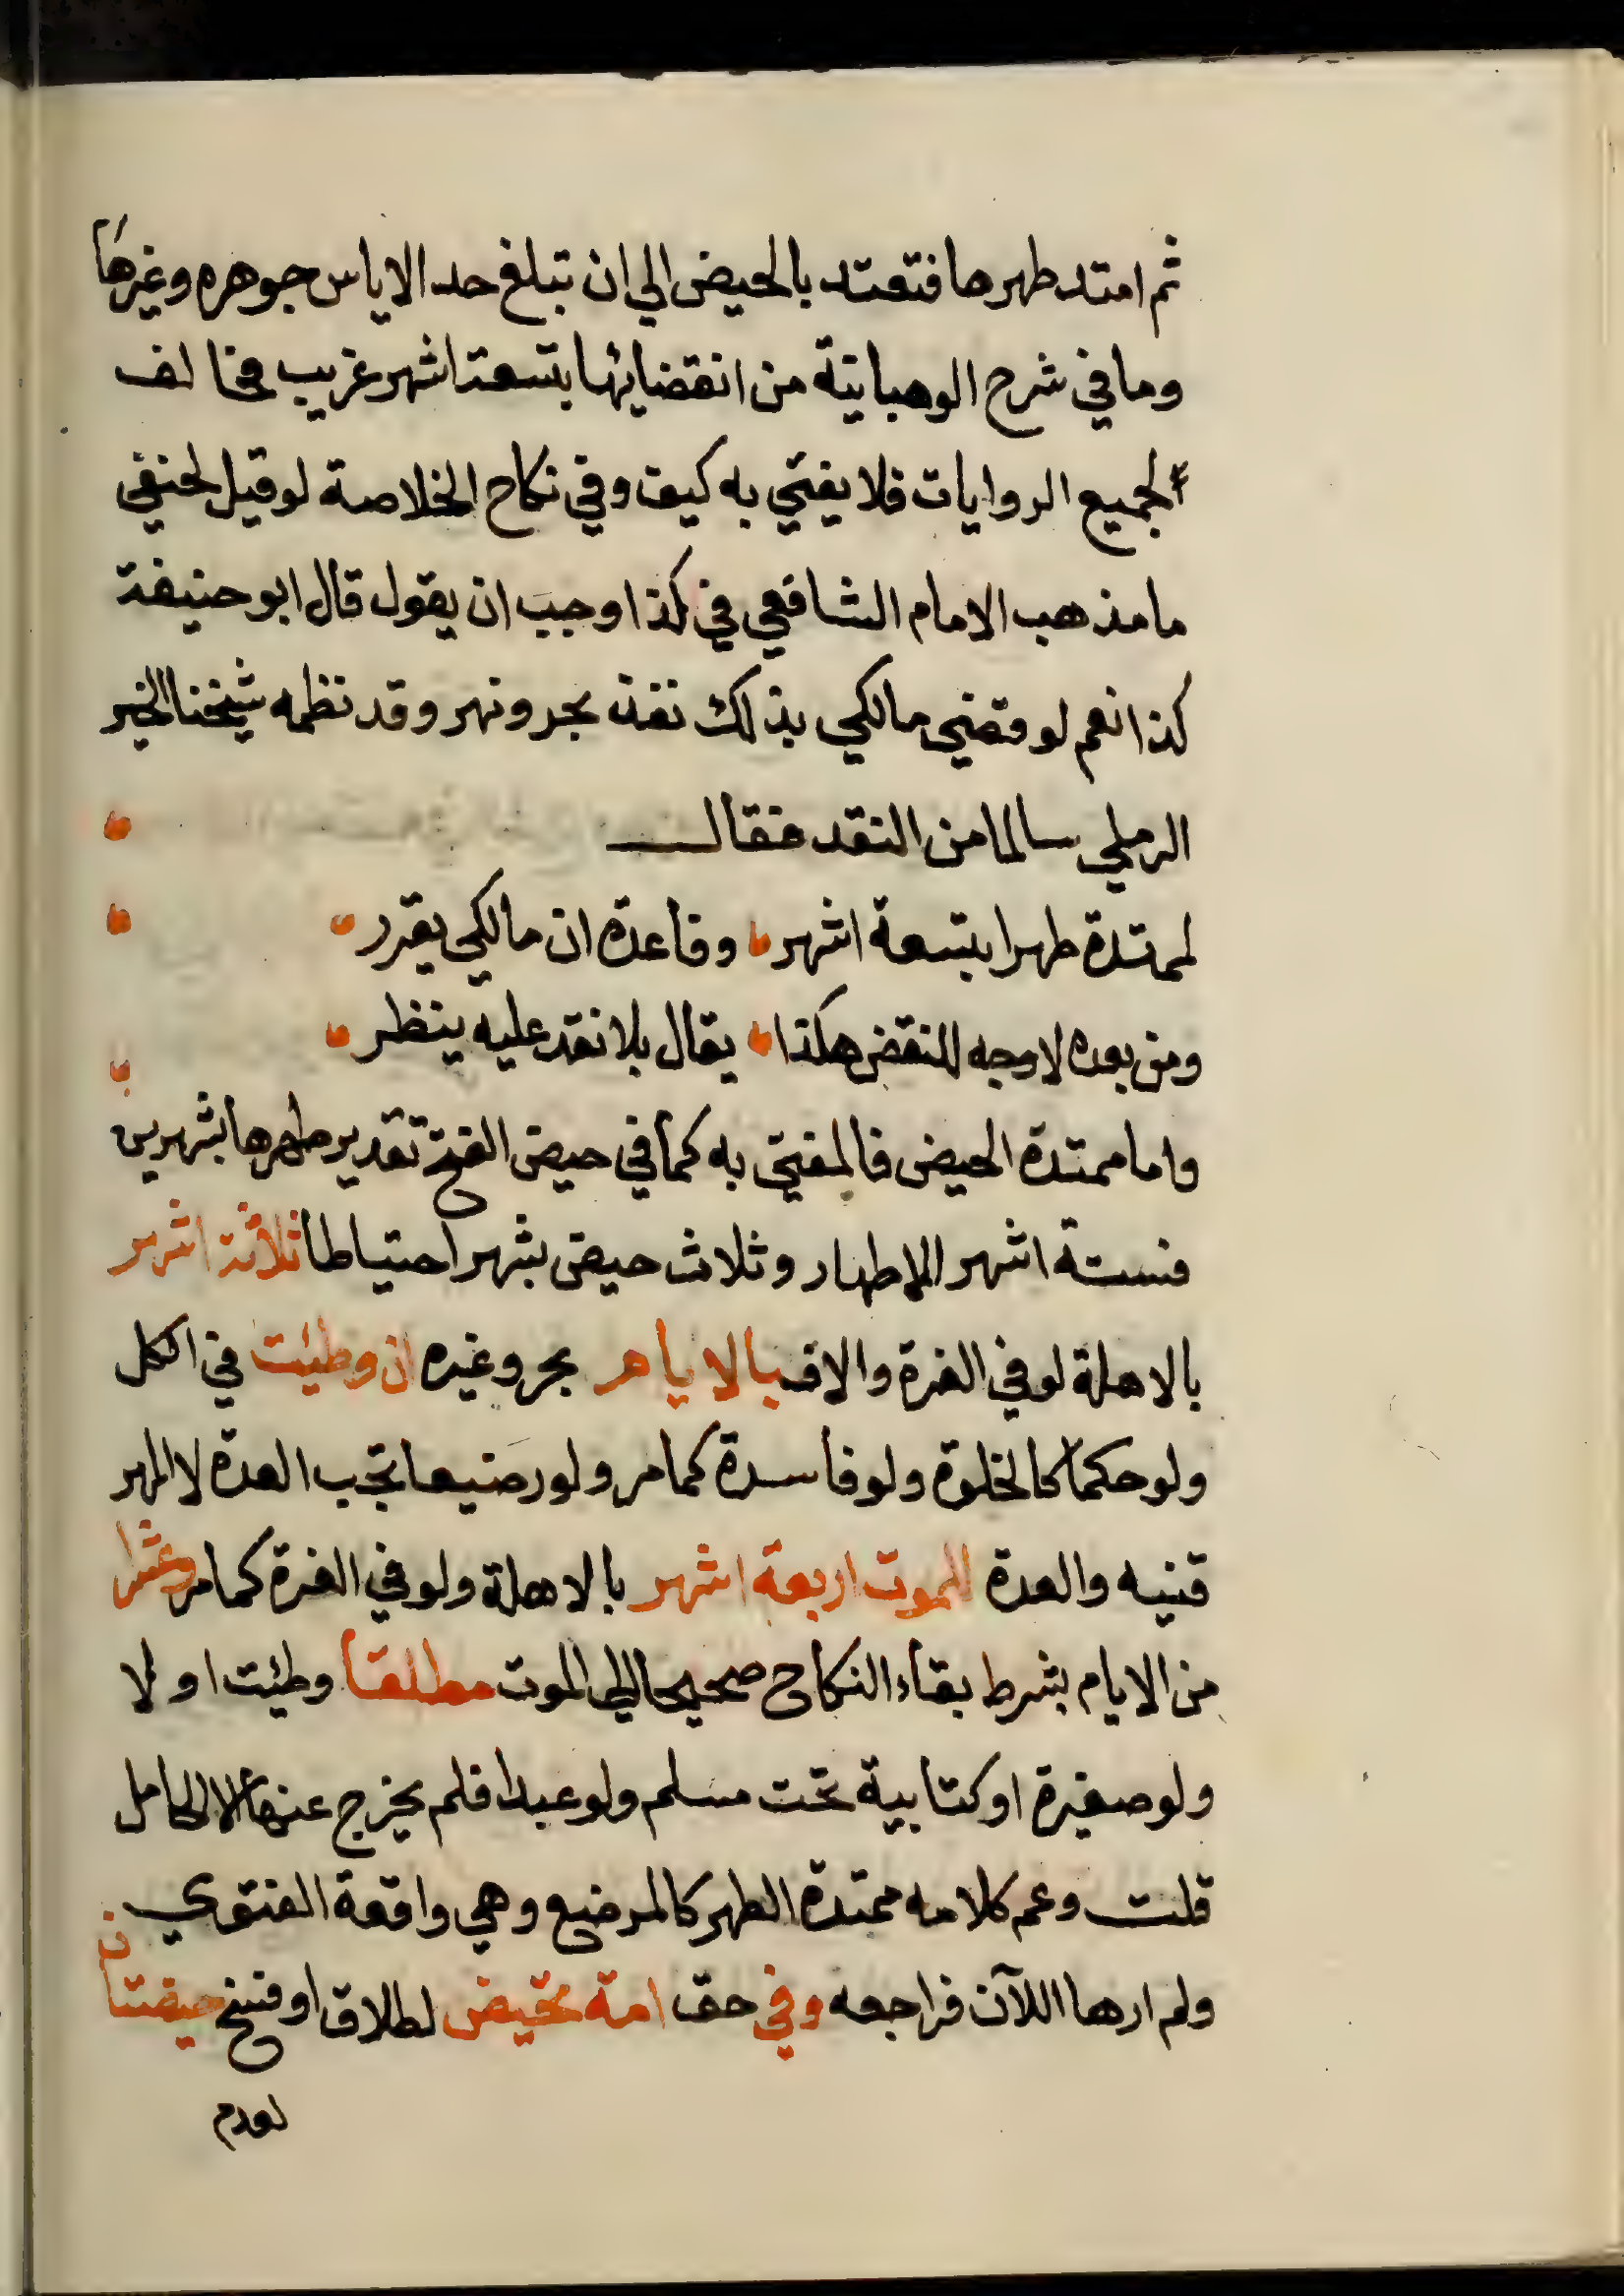 ثم امتد طهرها فتعتد بالحيض الي ان تبلغ حد الاياس جوهره وغيرها
وما في شرح الوهبانية من انقضايها بتسعة اشهر غريب مخالف
لجميع الروايات فلا يفتي به كيف وفي نكاح الخلاصة لو قيل لحنفي
ما مذهب الامام الشافعي في كذا وجب ان يقول قال ابو حنيفة
كذا نعم لو قضي مالكي بذلك نفذ بحر ونهر وقد نظمه شيخنا الخير
الرملي سالما من النقد فقال
لممتدة طهرا بتسعة اشهر وفا عدة ان مالكي يقرر
ومن بعده لا وجه للنقض هكذا يقال بلا نقد عليه ينظر
واما ممتدة الحيض فالمفتي به كما في حيض الفتح تقدير طهرها بشهرين
فستة اشهر للاطهار وثلاث حيض بشهر احتياطا ثلاثة اشهر
بالاهلة لو في الغرة والا فبالايام بحر وغيره ان وطئت في الكل
ولو حكما كالخلوة ولو فاسدة كما مر ولو رضيعا تجب العدة لا المهر
قنيه والعدة للموت اربعة اشهر بالاهلة ولو في الغرة كما مر وعشر
من الايام بشرط بقاء النكاح صحيحا الي الموت مطلقا وطئت او لا
ولو صغيرة او كتابية تحت مسلم ولو عبدا فلم يخرج عنها الا الحامل
قلت وعم كلامه ممتدة الطهر كالمرضع وهي واقعة الفتوي
ولم ارها اللآن فراجعه وفي حق امة تحيض لطلاق او فسخ حيضتان
لعدم